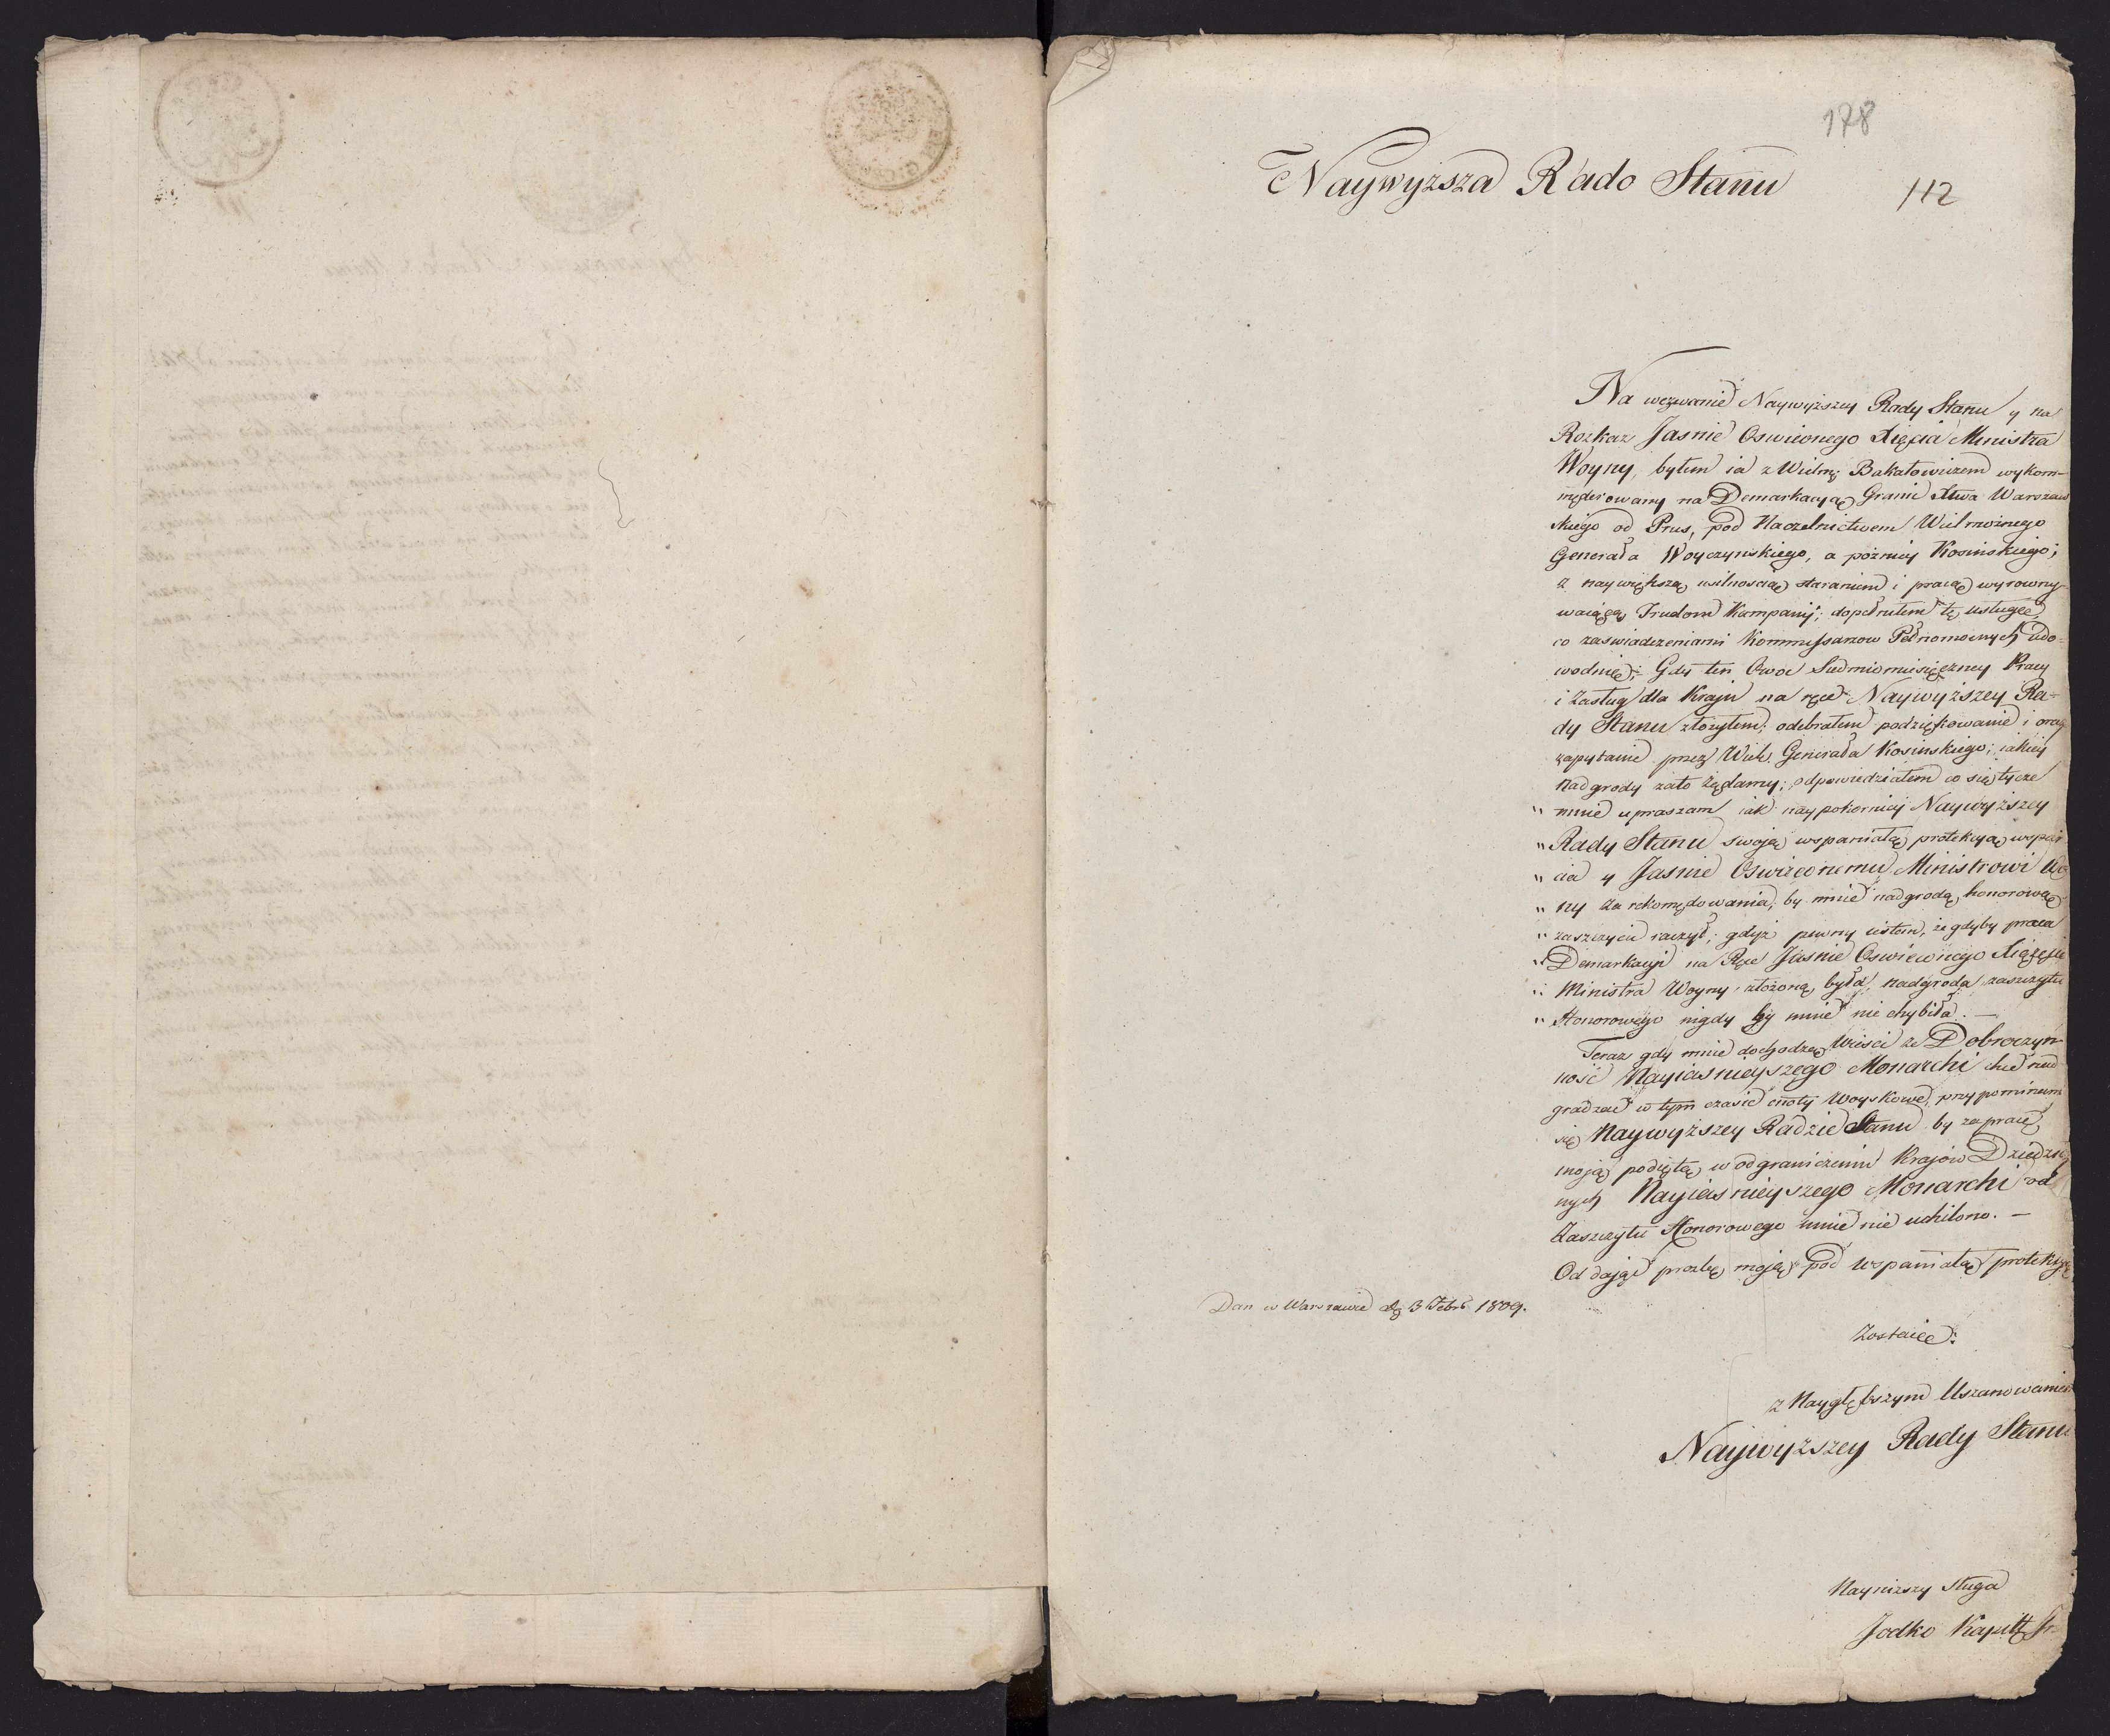 178
Naywyższa Rado Stanu
112
Na wezwanie Naywyższey Rady Stanu y na
Rozkaz Jasnie Oswieconego Xięcia Ministra
Woyny, byłem ia z Wielm: Bakałowiczem wykom-
męderowany na Demarkacyą Granic Xtwa Warszaw
skiego od Prus, pod Naczelnictwem Wielmożnego
Generała Woyczynskiego, a pozniey Kosinskiego;
z naywiększą usilnoscią staraniem i pracą wyrowny-
waiącą Trudom Kampanij; dopełniłem tę usługę,
co zaswiadczeniami Kommissarzow Pełnomocnych udo-
wodnię; Gdy ten Owoc Siedmiomiesięczney Pracy
i Zasług dla Kraju na ręce Naywyższey Ra-
dy Stanu złożyłem; odebrałem podziękowanie i oraz
zapytanie przez Wiel. Generała Kosinskiego; iakiey
Nadgrody zato żądamy; odpowiedziałem co się tycze
" mnie upraszam iak naypokorniey Naywyższey
" Rady Stanu swoją wspaniałą protekcyą wspar
" cia y Jasnie Oswieconemu Ministrowi Wo
" ny zarekomędowania, by mnie nadgrodą honorową
" zaszczycić raczył; gdyż pewny iestem, że gdyby praca
" Demarkacyi na Ręce Jasnie Oswieconego Xiążęcia
" Ministra Woyny złożoną była, nadgroda zaszczytu
" Honorowego nigdy by mnie nie chybiła. —
Teraz gdy mnie dochodzą Wiesci że Dobroczyn-
ność Nayiasnieyszego Monarchi chce nad-
gradzać w tym czasie cnoty Woyskowe, przypominam
się Naywyższey Radzie Stanu by za pracę
moją podiętą w odgraniczeniu Krajow Dziedzicz
nych Nayiasnieyszego Monarchi od
Zaszczytu Honorowego mnie nie uchilono. —
Oddając prozbę moję pod wspaniałą protekcyę
Dan w Warszawie d. 3 Febr. 1809.
Zostaię:
z Naygłębszym Uszanowaniem
Naywyższey Rady Stanu
Nayniższy sługa
Jodko Kapitt